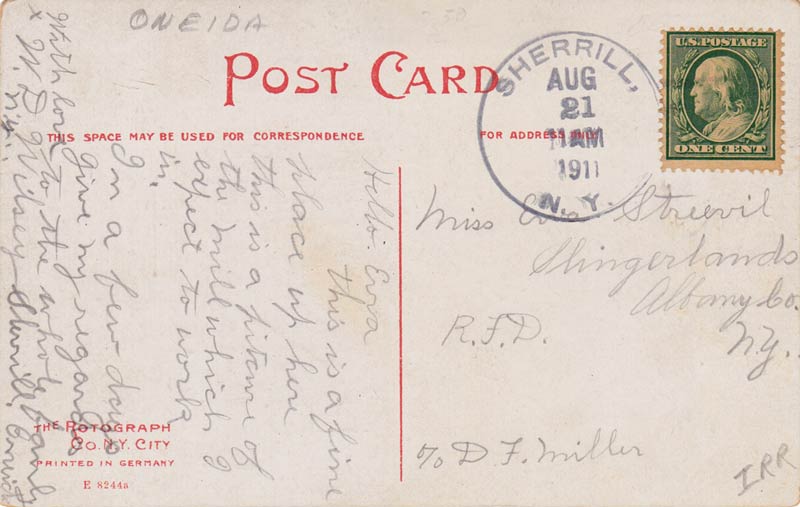 ONEIDA
POST CARD
THIS SPACE MAY BE USED FOR CORRESPONDENCE
FOR ADDRESS ONLY
SHERRILL,
AUG
21
11 AM
1911
N.Y.
U.S. POSTAGE
ONE CENT
Hello Eva
this is a fine
place up here
this is a picture of
the mill which I
expect to work
in.
In a few days
give my regards
to the whole family
With love
x W. D. Wilsey Sherrill
N.Y.
Miss Eva Streevil
Slingerlands
Albany Co.
R.F.D.
NY.
c/o D F. Miller
IRR
THE ROTOGRAPH
CO. N.Y. CITY
PRINTED IN GERMANY
E 8244a